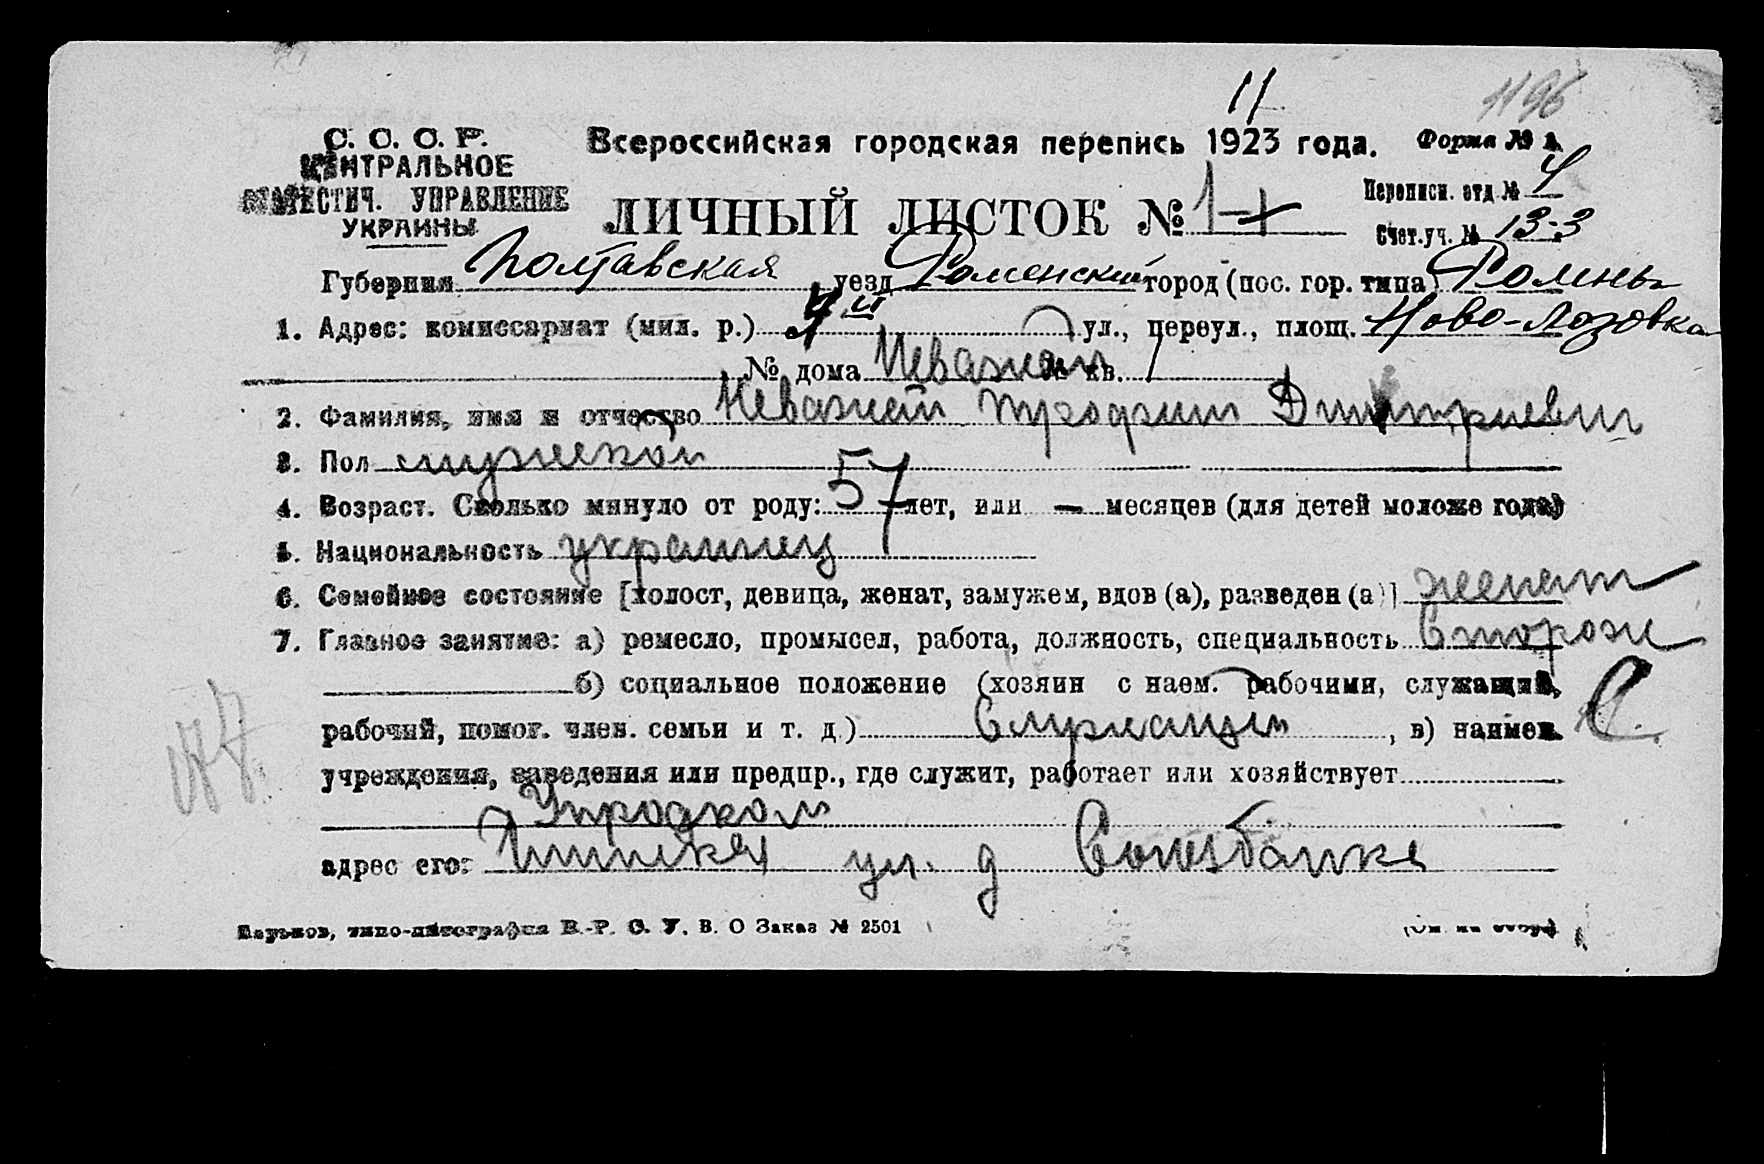 11
1196
С. С. С. Р. Всероссийская городская перепись 1923 года. Форма № 1.
ЦЕНТРАЛЬНОЕ
СТАТИСТИЧ. УПРАВЛЕНИЕ
УКРАИНЫ
ЛИЧНЫЙ ЛИСТОК № 1
Переписн. отд. № 4
Счет. уч. № 13-3
Губерния Полтавская уезд Роменский город (пос. гор. типа) Ромны
1. Адрес: комиссариат (мил. р.) ул., переул., площ. Ново-Лозовка
№ дома № кв. 1
2. Фамилия, имя и отчество Неважай Трофим Дмитриевич
3. Пол мужской
4. Возраст. Сколько минуло от роду: 57 лет, или — месяцев (для детей моложе года)
5. Национальность украинец
6. Семейное состояние [холост, девица, женат, замужем, вдов (а), разведен (а)] женат
7. Главное занятие: а) ремесло, промысел, работа, должность, специальность Сторож
б) социальное положение (хозяин с наем. рабочими, служащий,
рабочий, помог. член. семьи и т. д.) Служащий, в) наимен. С.
учреждения, заведения или предпр., где служит, работает или хозяйствует
Упродком
адрес его: ул. д
Харьков, типо-литография В.-Р. С. У. В. О Заказ № 2501
(См. на обор.)